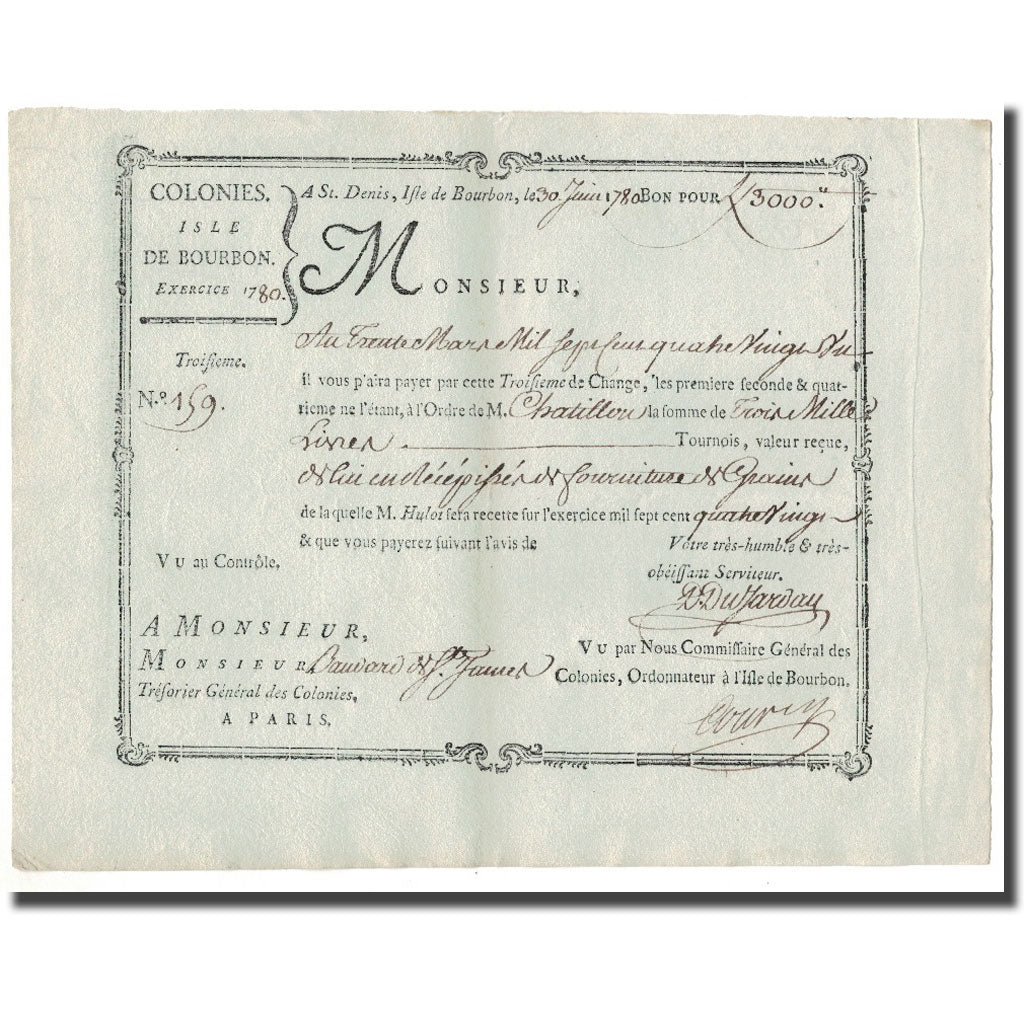 COLONIES.
ISLE
DE BOURBON.
EXERCICE 1780.
A St. Denis, Isle de Bourbon, le 30 Juin 1780 BON POUR £ 3000."
MONSIEUR,
Au Trente Mars Mil Sept Cent quatre Vingt Un
Troisieme.
il vous p'aira payer par cette Troisieme de Change, les premiere seconde & quat-
N.º 159.
rieme ne l'étant, à l'Ordre de M. Chatillon la somme de Trois Mille
Livres Tournois, valeur reçue,
de lui en Récépissés de fourniture de Grains
de la quelle M. Hulot sera recette sur l'exercice mil sept cent quatre Vingt
& que vous payerez suivant l'avis de
Votre très-humble & très-
obéissant Serviteur.
VU au Contrôle.
A MONSIEUR,
MONSIEUR Baudard de St. James
Trésorier Général des Colonies,
A PARIS.
VU par Nous Commissaire Général des
Colonies, Ordonnateur à l'Isle de Bourbon.